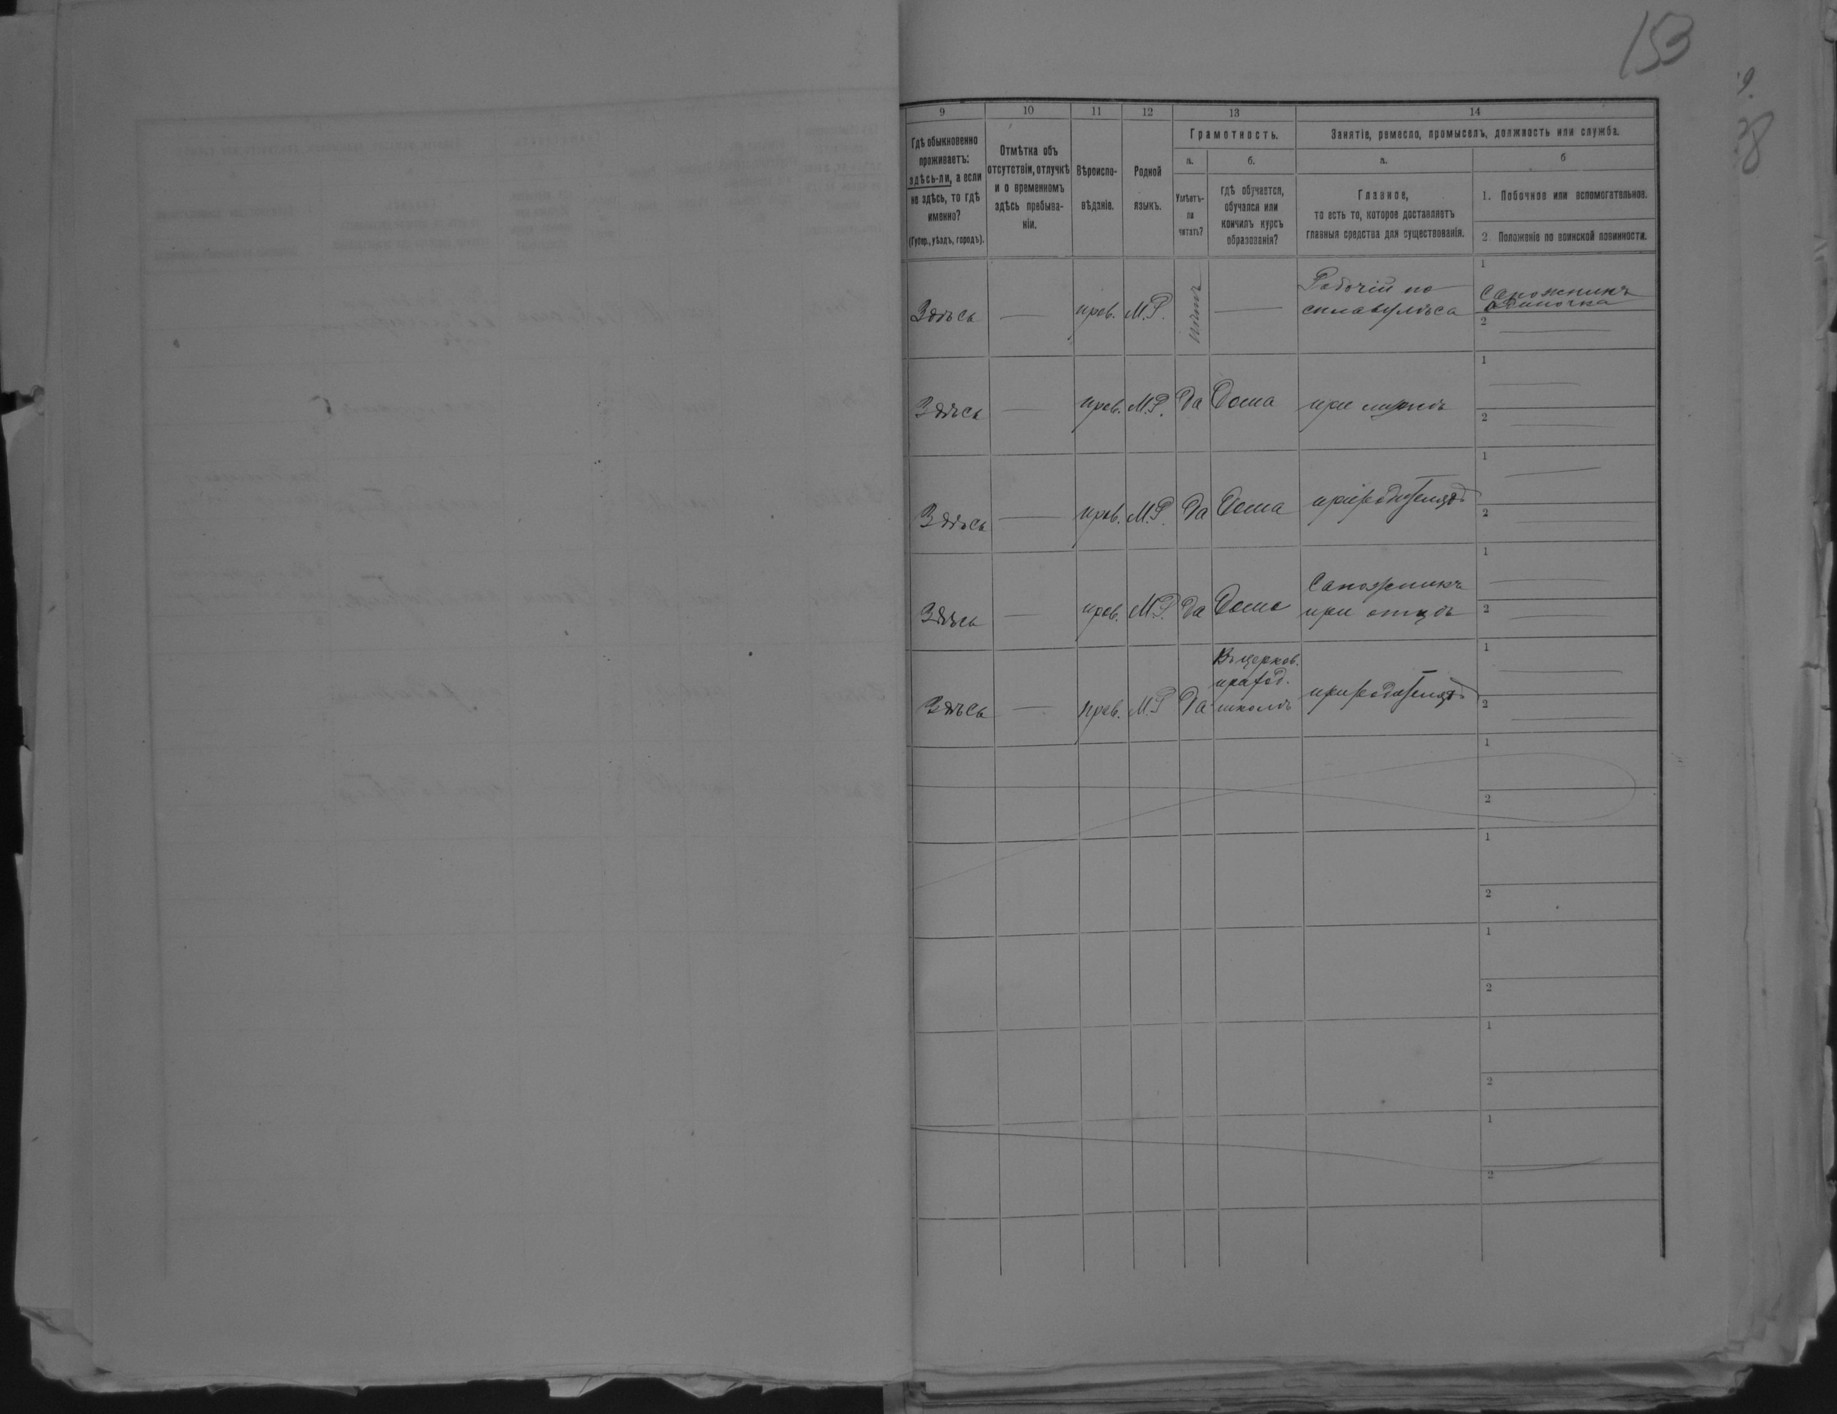 153
9 10 11 12 13 14
Гдѣ обыкновенно
проживаетъ:
здѣсь-ли, а если
не здѣсь, то гдѣ
именно?
(Губер., уѣздъ, городъ).
Отмѣтка объ
отсутствіи, отлучкѣ
и о временномъ
здѣсь пребыва-
ніи.
Вѣроиспо-
вѣданіе.
Родной
языкъ.
Грамотность.
а.
Умѣетъ-
ли
читать?
б.
гдѣ обучается,
обучался или
кончилъ курсъ
образованія?
Занятіе, ремесло, промыселъ, должность или служба.
а.
Главное,
то есть то, которое доставляетъ
главныя средства для существованія.
б
1. Побочное или вспомогательное.
2 Положеніе по воинской повинности.
Здѣсь — прав. М.Р. — Рабочій по
сплаву лѣса
1 Сапожникъ
одиночка
2 —
Здѣсь — прав. М.Р. Да Дома при мужѣ
1 —
2 —
Здѣсь — прав. М.Р. Да Дома при родителяхъ
1 —
2 —
Здѣсь — прав. М.Р. Да Дома Сапожникъ
при отцѣ
1 —
2 —
Здѣсь — прав. М.Р Да Въ церков.
школѣ
при родителяхъ
1 —
2 —
1
2
1
2
1
2
1
2
1
2